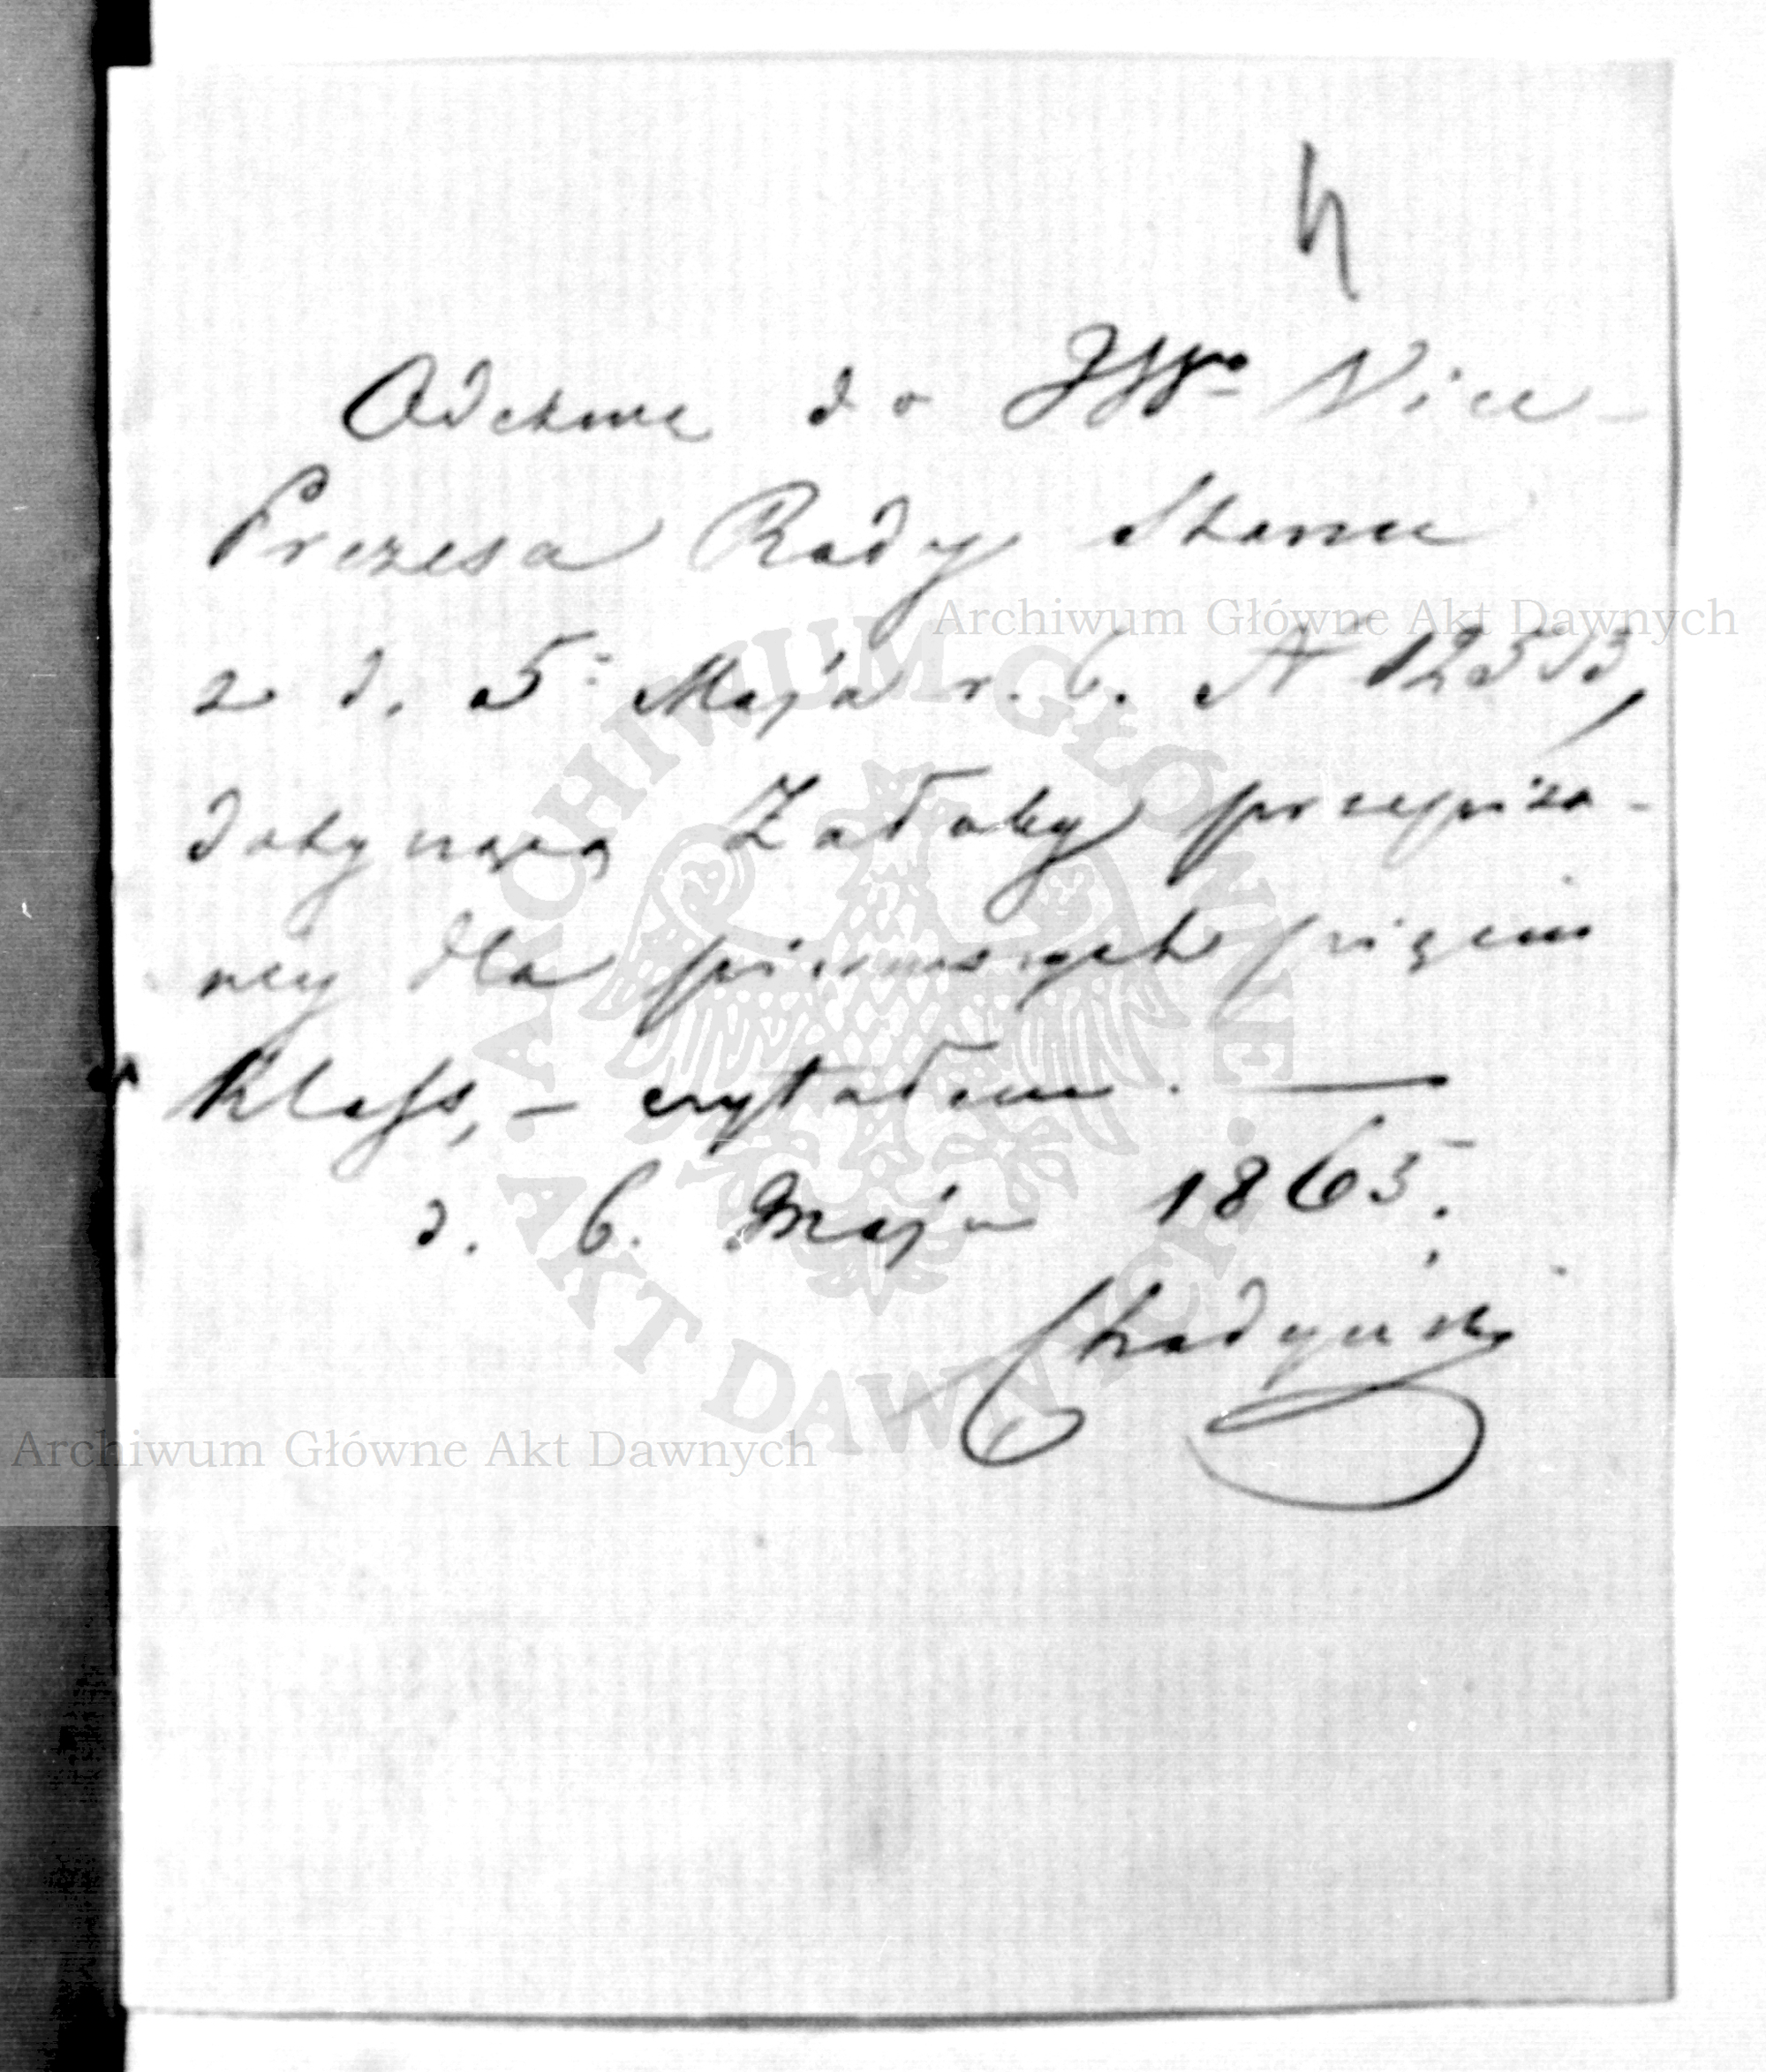 4
Odezwę do JWgo Vice-
Prezesa Rady Stanu
z d. 5: Maja r. b. N 12513,
Archiwum Główne Akt Dawnych
dotyczącą Żałoby przepisa-
ney dla pierwszych pięciu
Klass, – czytałem. —
d. 6. Maja 1865.
Archiwum Główne Akt Dawnych
ARCHIWUM GŁÓWNE AKT DAWNYCH